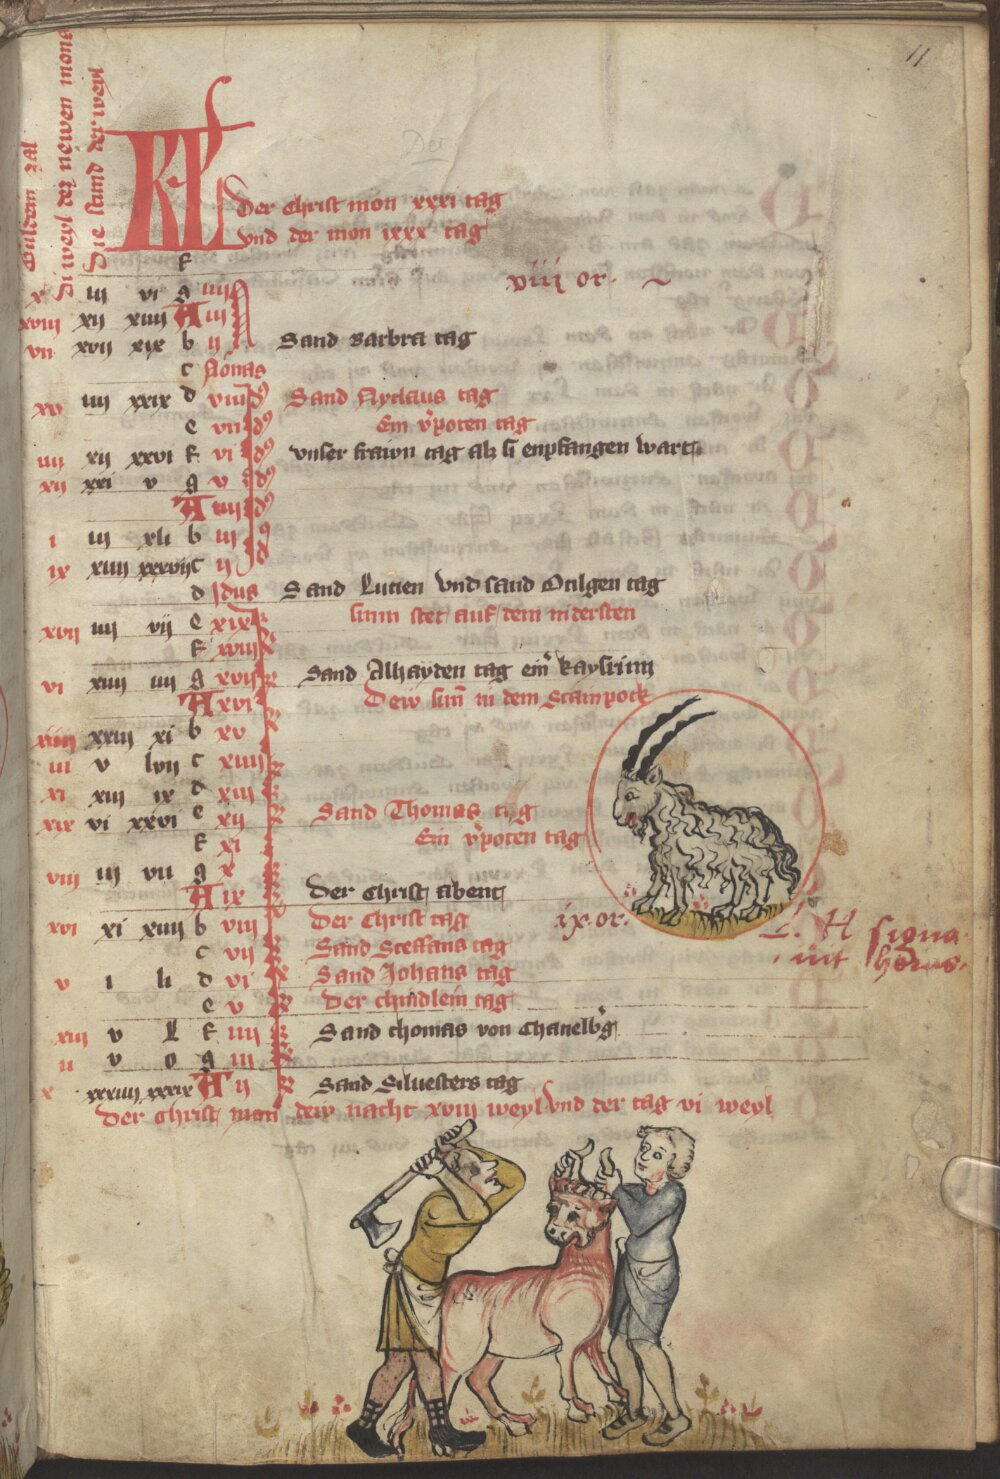 11
Guldein zal
Di weyl dez newen mons
Die stund der weyl
KL
Der Christ mon xxxi tag
vnd der mon xxx tag
f
x iii vi g iiii
viii or.
xviii xii xiiii A iii
vii xvii xix b ii Sand Barbra tag
c Nonas
xv iiii xxix d viii Sand Nyclaus tag
e vii Ein v̾poten tag
iiii xii xxvi f vi vnser frawn tag alz si enpfangen wart
xii xxi v g v
A iiii
i iii xli b iii
ix xiiii xxxvii c ii
d Idus Sand Lucien vnd sand Otilgen tag
xvii iiii vij e xix sunn stet auf dem nidersten
f xviii
vi xiiii iiii g xvii Sand Alhayden tag ein̾ kaysrinn
A xvi Dew sun̄ in dem Stainpock
xiiii xxiii xi b xv
iii v lvii c xiiii
xi xiii ix d xiii
xix vi xxvi e xii Sand Thomas tag
f xi Ein v̾poten tag
viii iii vii g x
A ix Der Christ abent
xvi xi xiiii b viii Der Christ tag
ix. or.
signa
c vii Sand Steffans tag
v i li d vi Sand Johans tag
e v Der chindlein tag
xiii v L f iiii Sand thomas von Chanelb̾g
ii v o g iii
x xxxiiii xxxix A ii Sand Siluesters tag
Der Christ mon dew nacht xviii weyl vnd der tag vi weyl